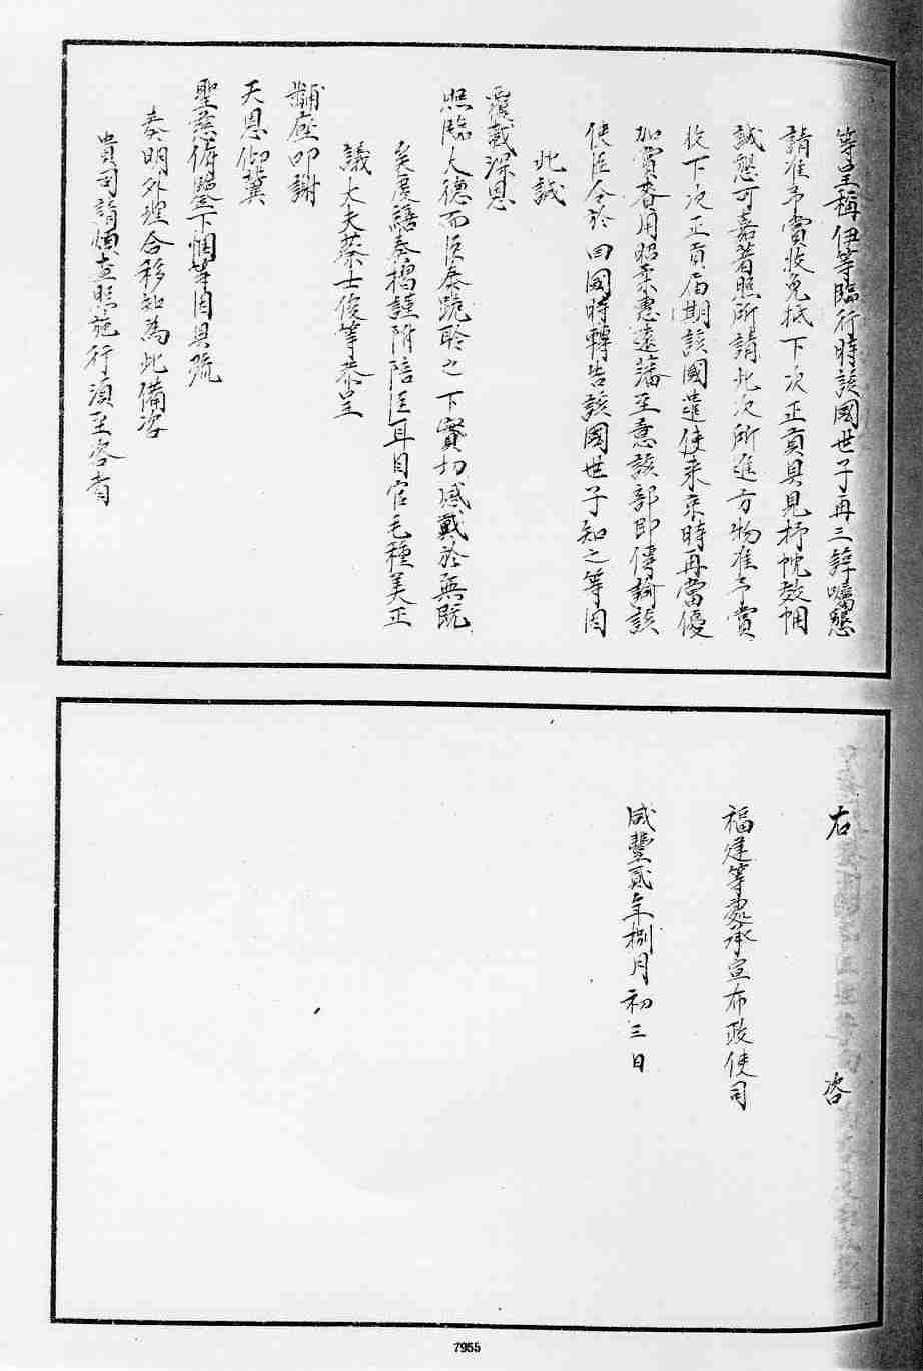 等呈稱伊等臨行時該國世子再三諄囑懇
請准予賞收免抵下次正貢具見抒忱效悃
誠懇可嘉著照所請此次所進方物准予賞
收下次正貢屆期該國遣使來京時再當優
加賞賚用昭柔惠遠藩至意該部即傳諭該
使臣令於回國時轉告該國世子知之等因
此誠
覆載深恩
照臨大德而臣泰跪聆之下實切感戴於無既
矣虔繕奏摺謹附陪臣耳目官毛種美正
議大夫蔡士俊等恭呈
黼座叩謝
天恩仰冀
聖慈俯鑒下悃等因具疏
奏明外理合移知為此備咨
貴司請煩查照施行須至咨者
右 咨
福建等處承宣布政使司
咸豐貳年捌月初三日
7955